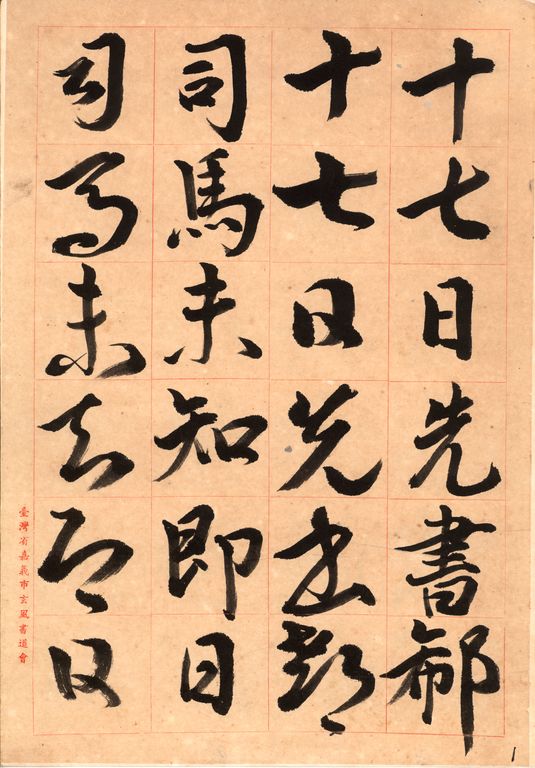 十七日先書郗
十七日先書郗
司馬未知即日
司馬未知即日
臺灣省嘉義市玄風書道會
1